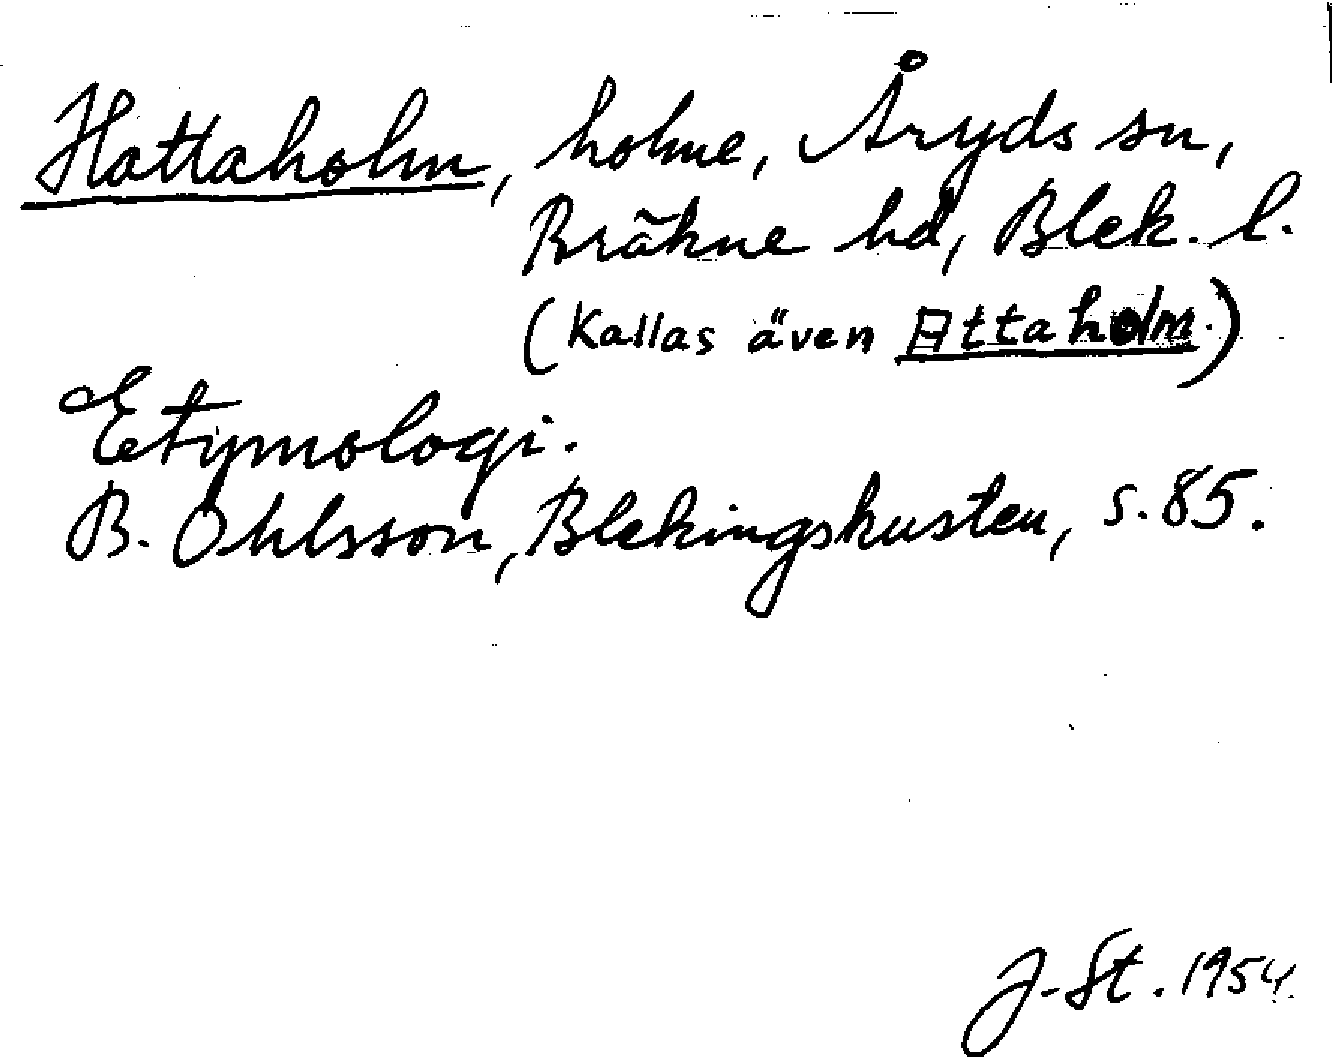 Hattaholm, holme, Åryds sn,
Bräkne hd, Blek. l.
(Kallas även Attaholm.)
Etymologi.
B. Ohlsson, Blekingskusten, s. 85.
J. St. 1954.